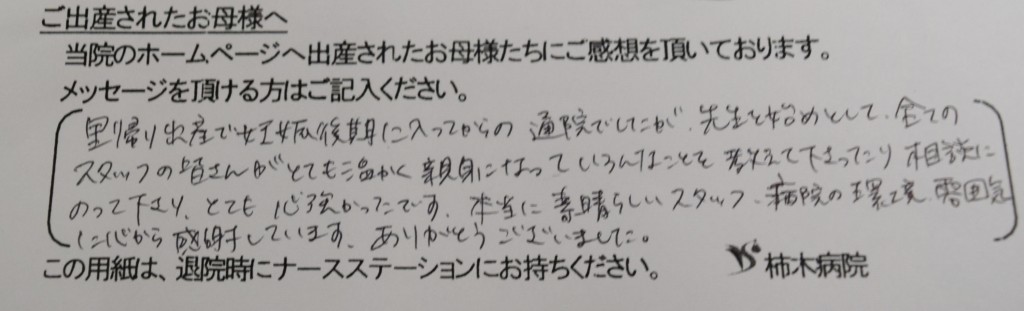 ご出産されたお母様へ
当院のホームページへ出産されたお母様たちにご感想を頂いております。
メッセージを頂ける方はご記入ください。
里帰り出産で妊娠後期に入ってからの通院でしたが、先生を始めとして、全ての
スタッフの皆さんがとても温かく親身になっていろんなことを教えて下さったり相談に
のって下さり、とても心強かったです。本当に素晴らしいスタッフ、病院の環境、雰囲気
に心から感謝しています。ありがとうございました。
この用紙は、退院時にナースステーションにお持ちください。
柿木病院